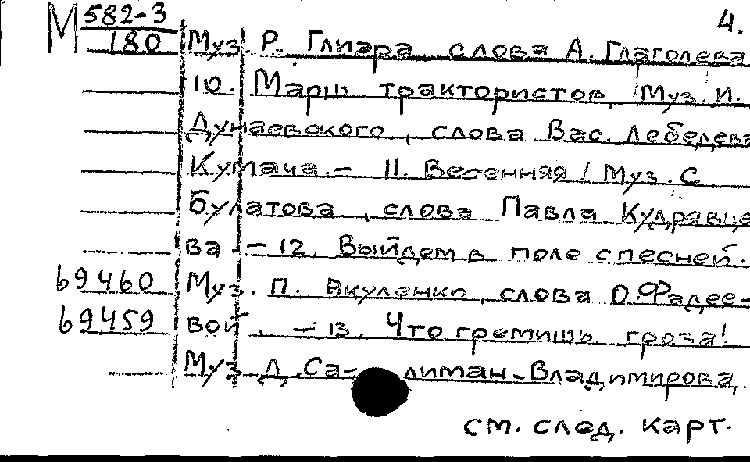 М 582-3 4.
180 Муз. Р. Глиэра, слова А. Глаголева
10. Марш трактористов / Муз. И.
Дунаевского, слова Вас. Лебедева
Кумача. - 11. Весенняя / Муз. С
Булатова, слова Павла Кудрявце
ва - 12. Выйдем в поле с песней.
69460 Муз. П. Акуленко, слова О. Фадее-
69459 вой. - 13. Что гремишь, гроза!
Муз. Д. Са- лиман-Владимирова,
см. след. карт.